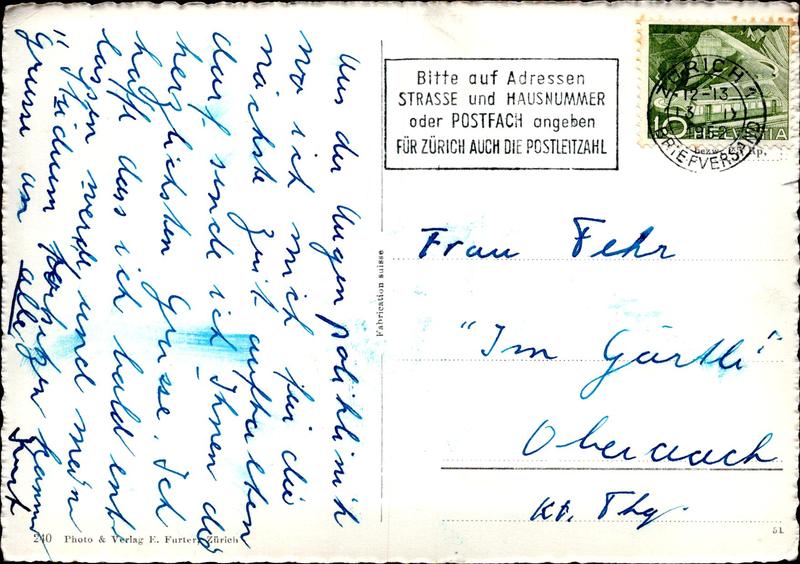 Aus der Augenpoliklinik
wo ich mich für die
nächste Zeit aufhalten
darf sende ich Ihnen die
herzlichsten Grüsse. Ich
hoffe dass ich bald ent-
lassen werde, und mein
Studium fortsetzen kann
Grüsse an alle
Kurt
Bitte auf Adressen
STRASSE und HAUSNUMMER
oder POSTFACH angeben
FÜR ZÜRICH AUCH DIE POSTLEITZAHL
ZÜRICH 1
12-13
1952
BRIEFVERSAND
5 HELVETIA
Fabrication suisse
Frau Fehr
"Im Gärtli"
Oberaach
Kt. Thg.
240 Photo & Verlag E. Furter, Zürich
51